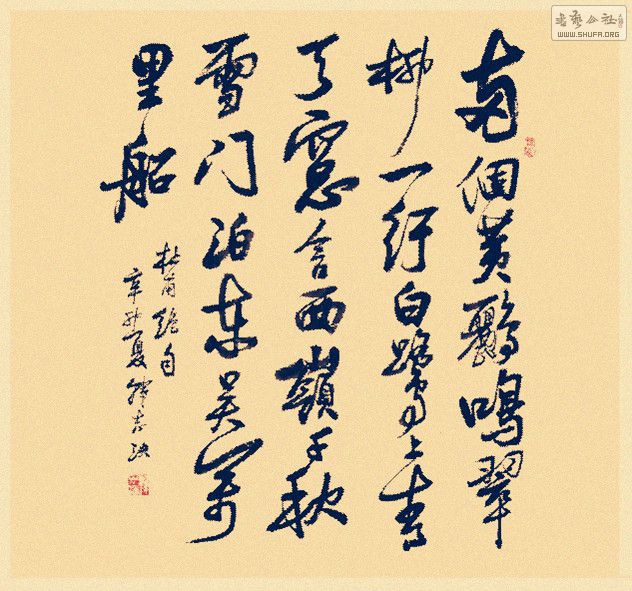 两個黄鸝鳴翠
柳一行白鷺上青
天窓含西嶺千秋
雪门泊東吴萬
里船
杜甫絶句
辛卯夏
书藝公社
WWW.SHUFA.ORG